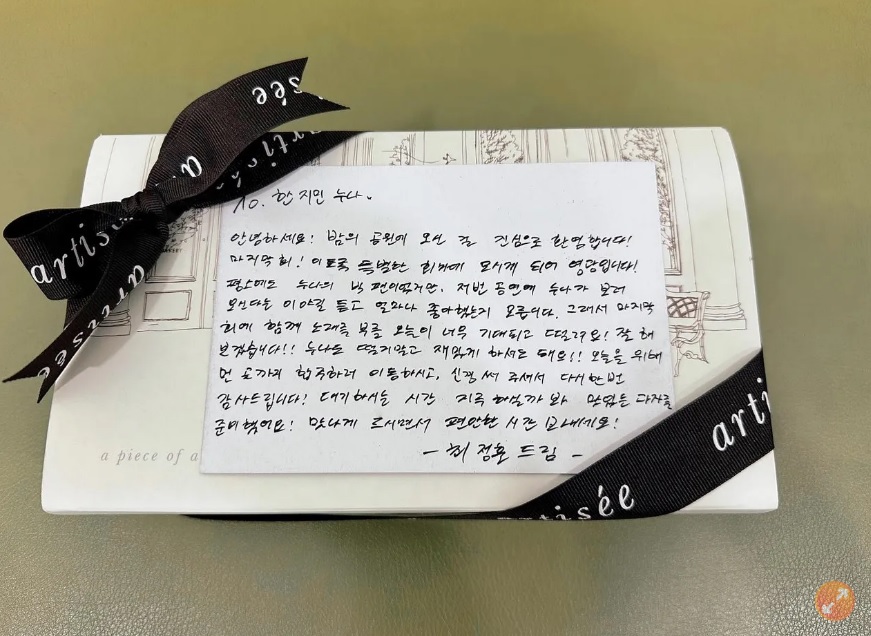 artisée
To. 한지민 누나.
안녕하세요! 밤의 공원에 오신 걸 진심으로 환영합니다!
마지막 회! 이토록 특별한 회차에 모시게 되어 영광입니다!
평소에도 누나의 빅 팬이었지만, 저번 공연에 누나가 보러
오신다는 이야길 듣고 얼마나 좋아했는지 모릅니다. 그래서 마지막
회에 함께 노래를 부를 오늘이 너무 기대되고 떨려요! 잘 해
보겠습니다!! 누나도 떨지말고 재밌게 하셔도 돼요!! 오늘을 위해
먼 곳까지 합주하러 이동하시고, 신경 써 주셔서 다시한번
감사드립니다! 대기하시는 시간 지루하실까 봐 맛있는 과자를
준비했어요! 맛나게 드시면서 편안한 시간 보내세요!
- 최정훈 드림 -
a piece of a
artisée